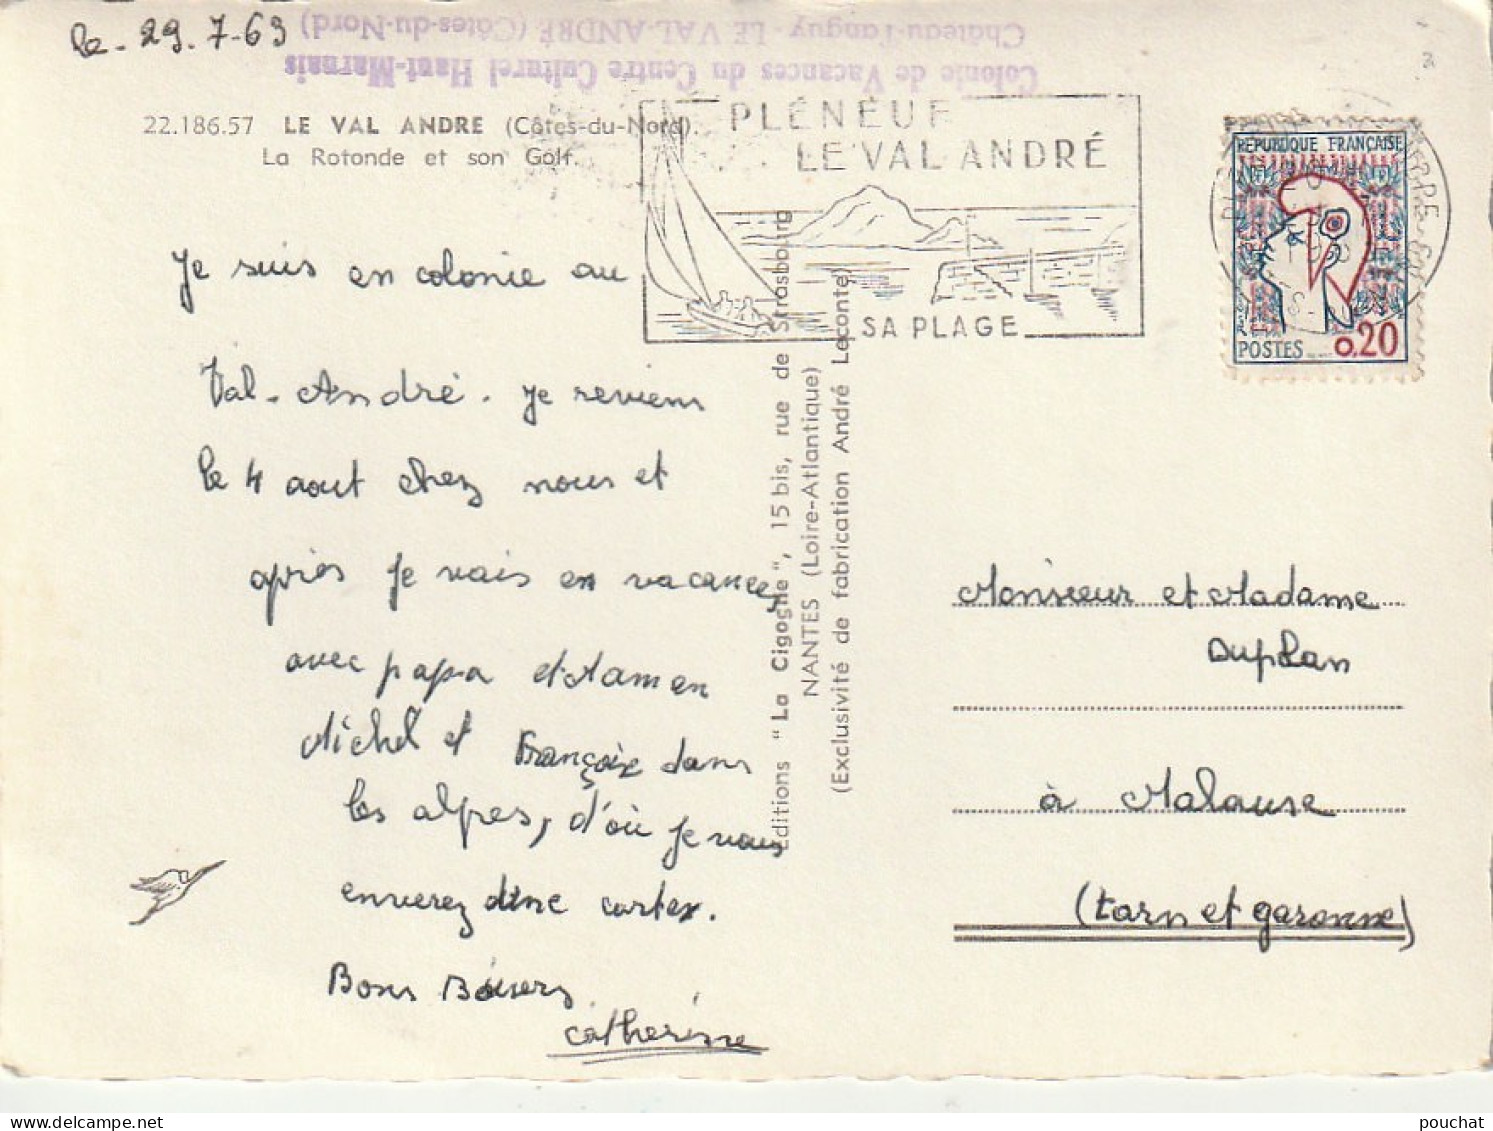 le - 29.7-63
Colonie de Vacances du Centre Culturel Haut-Marnais
Château-Tanguy - LE VAL ANDRÉ (Côtes-du-Nord)
22.186.57 LE VAL ANDRE (Côtes-du-Nord).
La Rotonde et son Golf.
PLÉNEUF
LE VAL ANDRÉ
SA PLAGE
REPUBLIQUE FRANÇAISE
POSTES 0.20
Je suis en colonie au
Val-André. Je reviens
le 4 aout chez nous et
après Je vais en vacances,
avec papa et Maman
Michel et Françoise dans
les alpes, d'où Je vous
enverez une cartes.
Bons Baisers
Catherine
Editions "La Cigogne", 15 bis, rue de Strasbourg
NANTES (Loire-Atlantique)
(Exclusivité de fabrication André Leconte)
Monsieur et Madame
Duplan
à Malause
(tarn et garonne)
pouchat